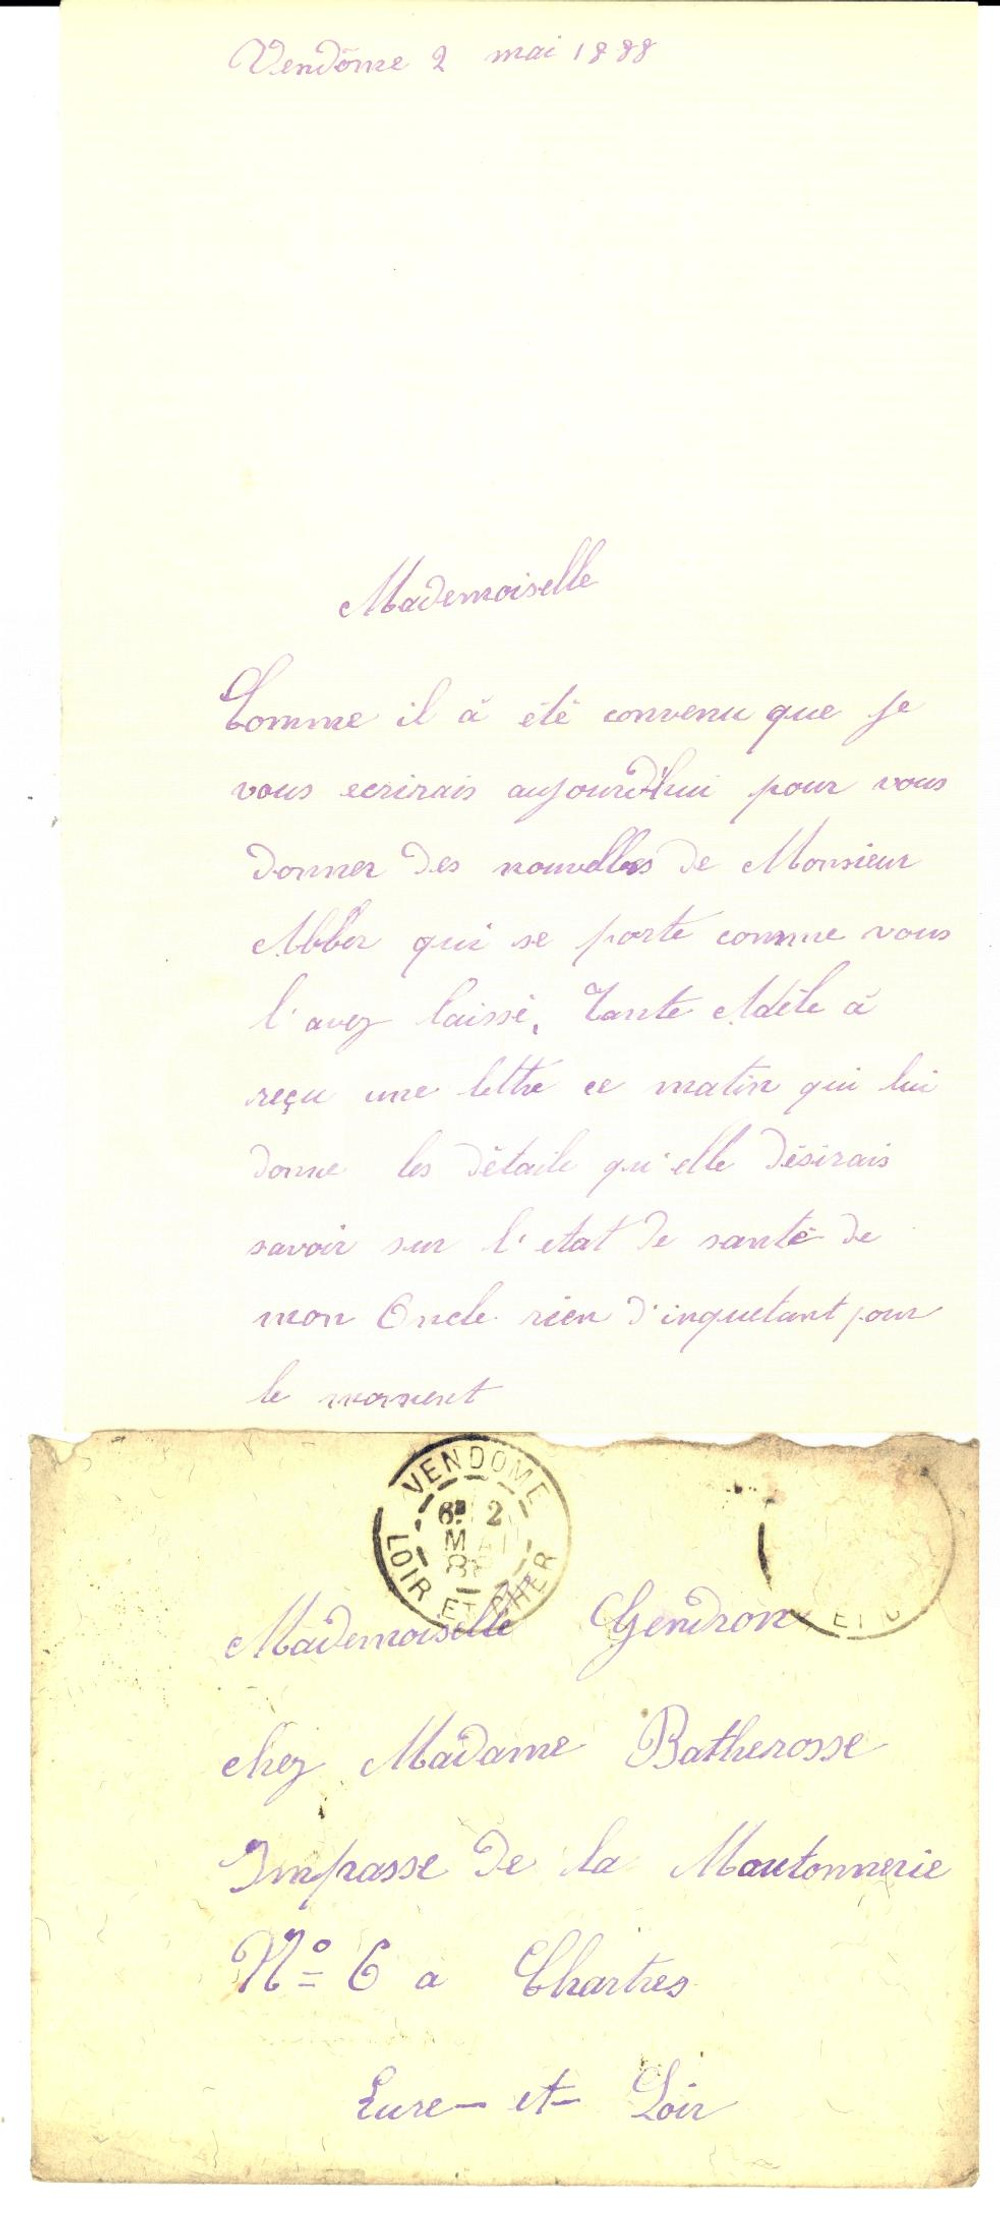 Vendôme 2 mai 1888
Mademoiselle
Comme il à été convenu que je
vous ecrirais aujourd'hui pour vous
donner des nouvelles de Monsieur
qui se porte comme vous
l'avez laissé, Tante Adèle à
reçu une lettre ce matin qui lui
donne les détails qu'elle désirais
savoir sur l'etat de santé de
mon Oncle rien d'inquetant pour
le moment
VENDOME
6E 2
MAI
88
LOIR ET CHER
Mademoiselle Gendron
chez Madame Batherosse
Impasse de la Moutonnerie
No 6 a Chartres
Eure - et - Loir